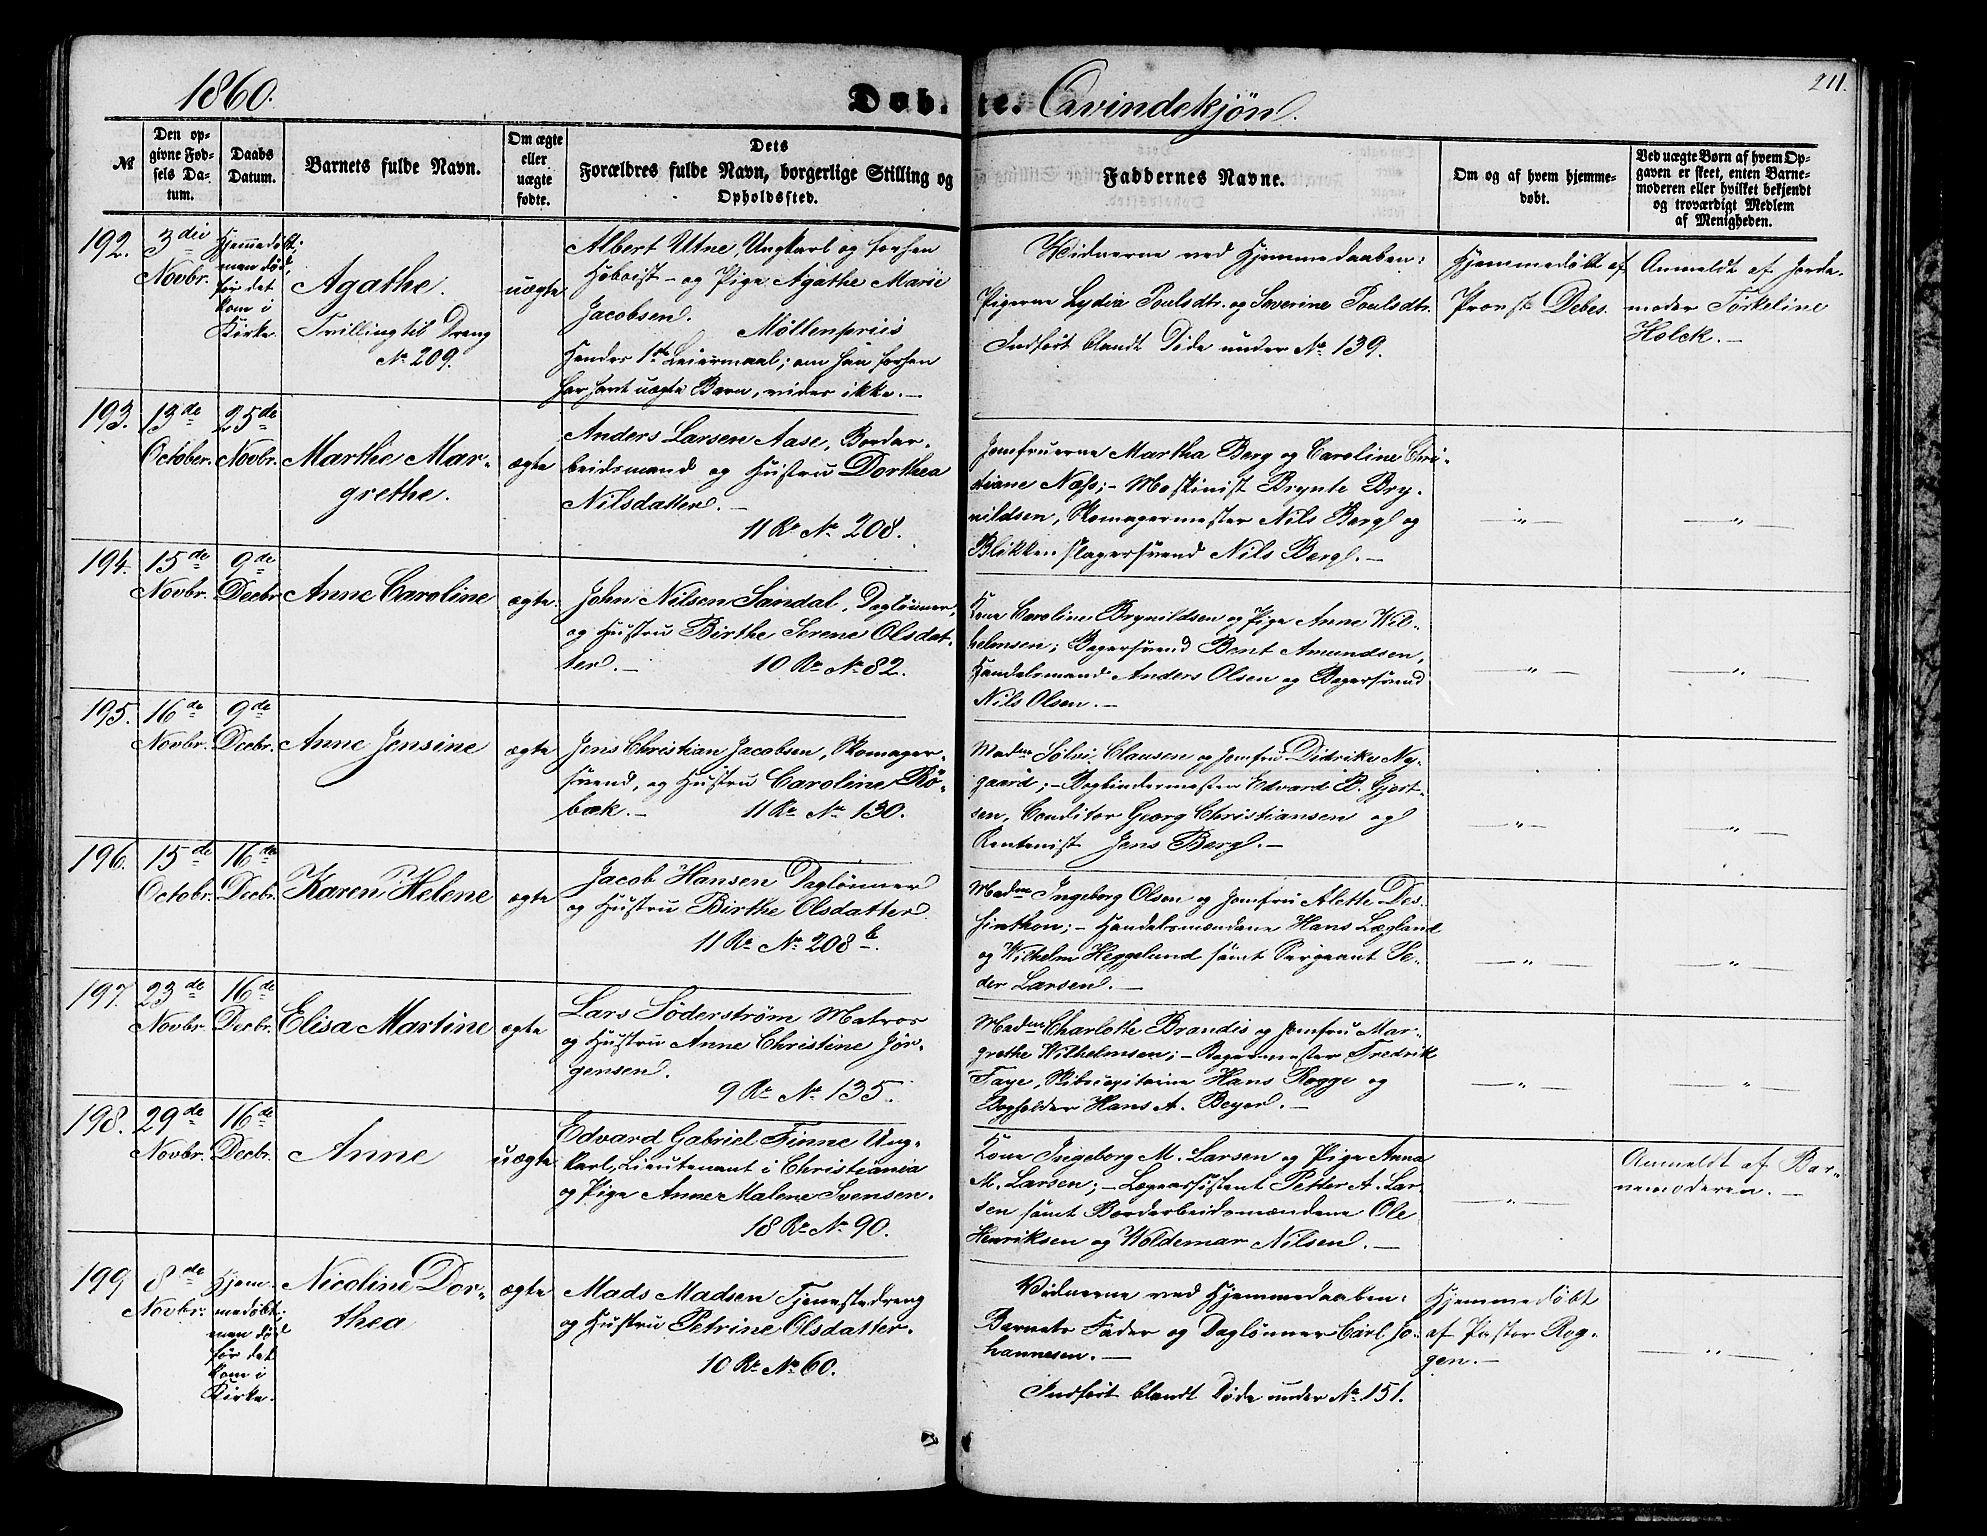 1860.
Døb. te. Qvindekjøn.
211.
№
Den op-
givne Fød-
sels Da-
tum.
Daabs
Datum.
Barnets fulde Navn.
Om ægte
eller
uægte
fødte.
Dets
Forældres fulde Navn, borgerlige Stilling og
Opholdssted.
Faddernes Navne.
Om og af hvem hjemme-
døbt.
Ved uægte Børn af hvem Op-
gaven er skeet, enten Barne-
moderen eller hvilket bekjendt
og troværdigt Medlem
af Menigheden.
192.
3die
Novbr.
Hjemmedøbt,
men død,
før det
kom i
Kirke.
Agathe.
Tvilling til Dreng
№ 209.
uægte
Albert Utne, Ungkarl og forhen
Hoboist – og Pige Agathe Marie
Jacobsen.
Møllenpriis
Hendes 1ste Leiermaal; om han forhen
har havt uægte Barn, vides ikke. –
Vidnerne ved Hjemmedaaben:
Pigerne Lydia Poulsdtr. og Severine Poulsdtr.
Indført blandt Døde under № 139.
Hjemmedøbt af
Provst Debes.
Anmeldt af Jorde-
moder Torkeline
Holck. –
193.
13de
October.
25de
Novbr.
Marthe Mar-
grethe.
ægte
Anders Larsen Aase, Bordar-
beidsmand og Hustru Dorthea
Nilsdatter. –
11 R. № 208.
Jomfruerne Martha Berg og Caroline Chri-
stiane Næss; – Maskinist Brynte Bry-
nildsen, Skomagermester Nils Berg og
Blikkenslagersvend Nils Berg. –
– „ –
– „ –
194.
15de
Novbr.
9de
Decbr.
Anne Caroline
ægte.
John Nilsen Sandal, Daglønner,
og Hustru Birthe Serene Olsdat-
ter. –
10 R. № 82.
Kone Caroline Brynildsen og Pige Anne Wil-
helmsen; Bagersvend Bent Amundsen,
Handelsmand Anders Olsen og Bagersvend
Nils Olsen. –
– „ –
– „ –
195.
16de
Novbr.
9de
Decbr.
Anne Jensine
ægte
Jens Christian Jacobsen, Skomager-
svend, og Hustru Caroline Rö-
bæk. –
11 R. № 130.
Madm Sølvi Clausen og Jomfru Didrike Ny-
gaard; – Bogbindermester Edvard B. Gjert-
sen, Conditor Georg Christiansen og
Rentenist Jens Berg. –
– „ –
– „ –
196.
15de
Octobr.
16de
Decbr.
Karen Helene
ægte
Jacob Hansen Daglønner
og Hustru Birthe Olsdatter
11 R. № 208 b.
Madm Ingeborg Olsen og Jomfru Alette Des-
sinthon; – Handelsmændene Hans Lægland
og Wilhelm Heggelund samt Sergeant Pe-
der Larsen. –
– „ –
– „ –
197.
23de
Novbr.
16de
Decbr.
Elisa Martine
ægte
Lars Söderström Matros
og Hustru Anne Christine Jör-
gensen.
9 R. № 135.
Madm Charlotte Brandis og Jomfru Mar-
grethe Wilhelmsen; – Bagermester Fredrik
Faye, Skibscapitaine Hans Rogge og
Bogholder Hans A. Beyer. –
– „ –
– „ –
198.
29de
Novbr.
16de
Decbr.
Anne
uægte
Edvard Gabriel Finne Ung-
karl, Lieutenant i Christiania
og Pige Anne Malene Svensen.
18 R. № 90.
Kone Ingeborg M. Larsen og Pige Anna
M. Larsen; – Lægeassistent Petter A. Lar-
sen samt Bordarbeidsmændene Ole
Henriksen og Woldemar Nilsen. –
– „ –
Anmeldt af Bar-
nemoderen. –
199
8de
Novbr.
Hjem-
medøbt;
men død
før det
kom i
Kirke.
Nicoline Dor-
thea
ægte
Mads Madsen Tjenestedreng
og Hustru Petrine Olsdatter.
10 R. № 60.
Vidnerne ved Hjemmedaaben:
Barnets Fader og Daglønner Carl Jo-
hannesen. –
Indført blandt Døde under № 151.
Hjemmedøbt
af Pastor Rog-
gen. –
– „ –